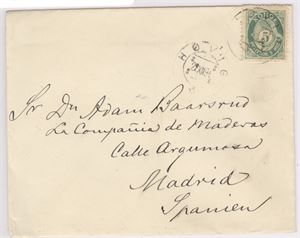 HØVIG
5
Sr. Dn Adam Baarsrud
La Compañia de Maderas
Calle Argumosa
Madrid
Spanien